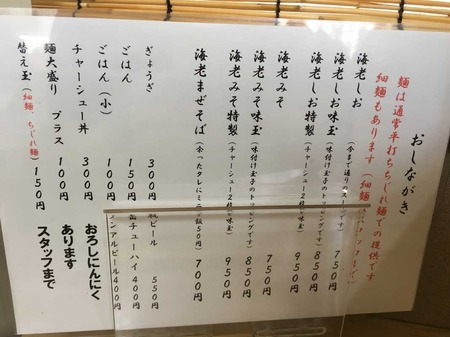 おしながき
麺は通常平打ちちぢれ麺での提供です
細麺もあります（細麺
海老しお（今まで通りのスープです） 750円
海老しお味玉（味付け玉子のトッピングです） 850円
海老しお特製（チャーシュー2 950円
海老みそ 750円
海老みそ味玉（味付け玉子のトッピングです） 850円
海老みそ特製（チャーシュー2 950円
海老まぜそば（余ったタレにミニご飯50円） 700円
ぎょうざ 300円
ごはん 150円
ごはん（小） 100円
チャーシュー丼 300円
麺大盛り プラス 100円
替え玉（細麺、ちぢれ麺） 150円
ビール 550円
缶チューハイ 400円
ノンアルビール 400円
おろしにんにく
あります
スタッフまで